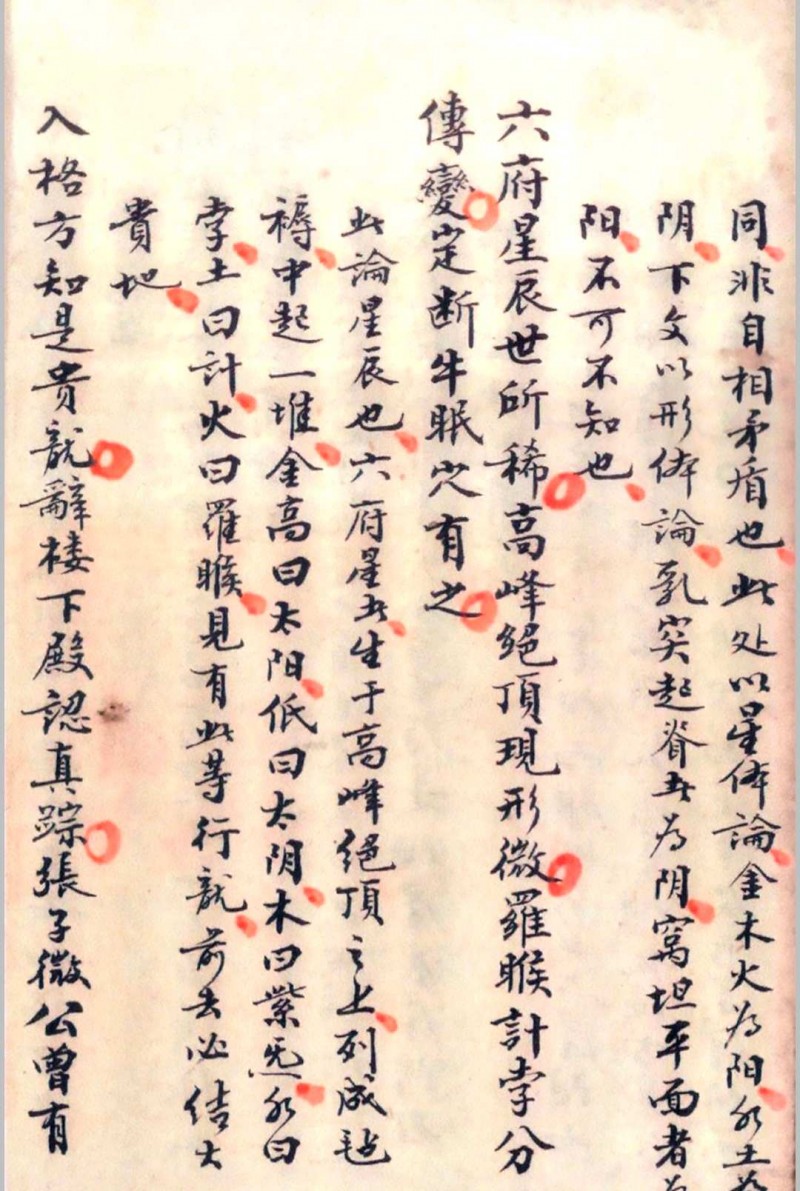 同非自相矛盾也此处以星体論金木火为阳水土
阴下文以形体論乳突起脊者为阴窩坦平面者
阳不可不知也
六府星辰世所稀高峰絕頂現形微羅睺計孛分
傳變定断牛眠穴有之
此論星辰也六府星者生于高峰絕頂之上列成毡
褥中起一堆金高曰太阳低曰太阴木曰紫炁水曰
孛土曰計火曰羅睺見有此等行龍前去必結大
貴地
入格方知是貴龍辭楼下殿認真踪張子微公曾有